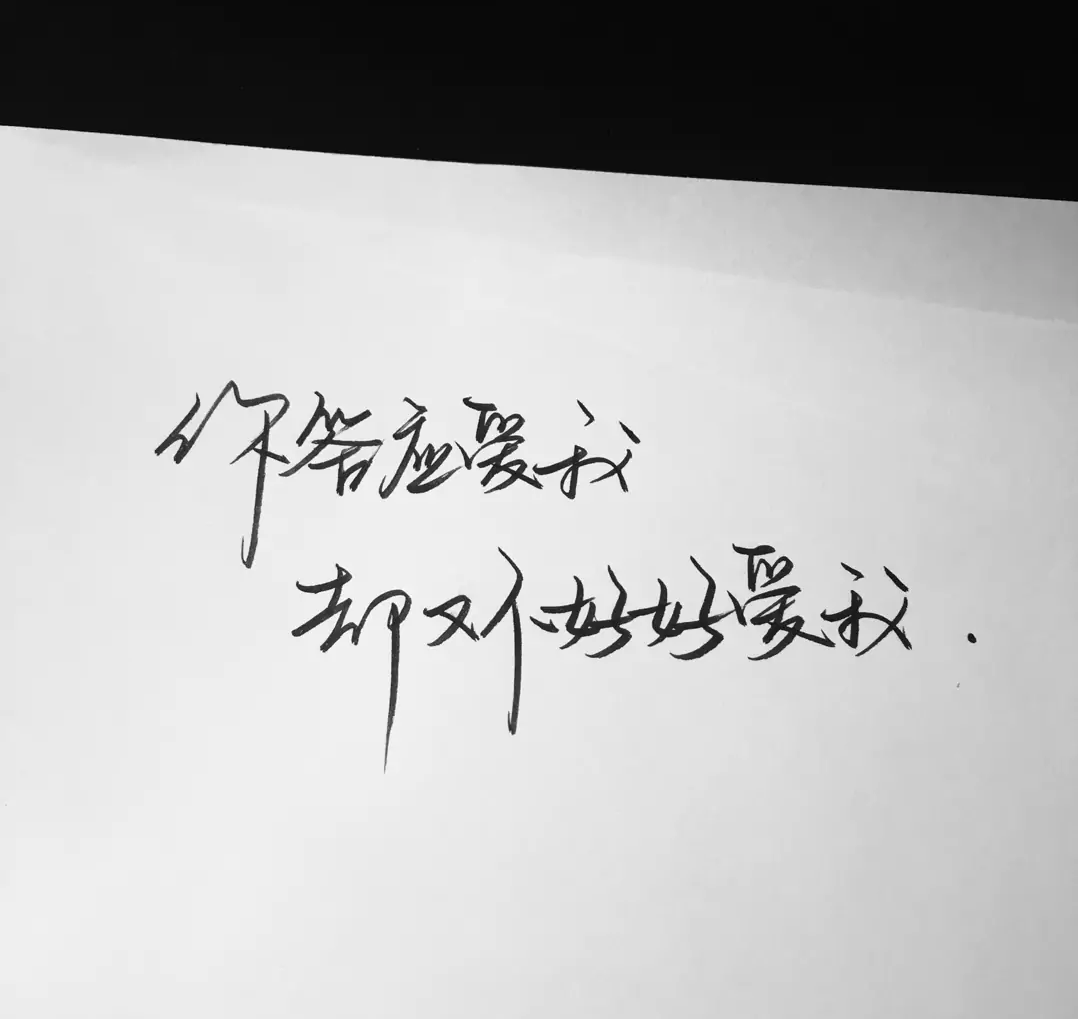 你答应爱我
却又不好好爱我.